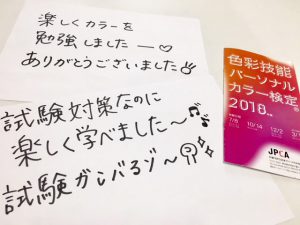 楽しくカラーを
勉強しました ー♡
ありがとうございました
試験対策なのに
楽しく学べました〜♪
試験ガンバるゾ〜
色彩技能
パーソナル
カラー検定
2018
7/8
10/14
12/2
JPCA